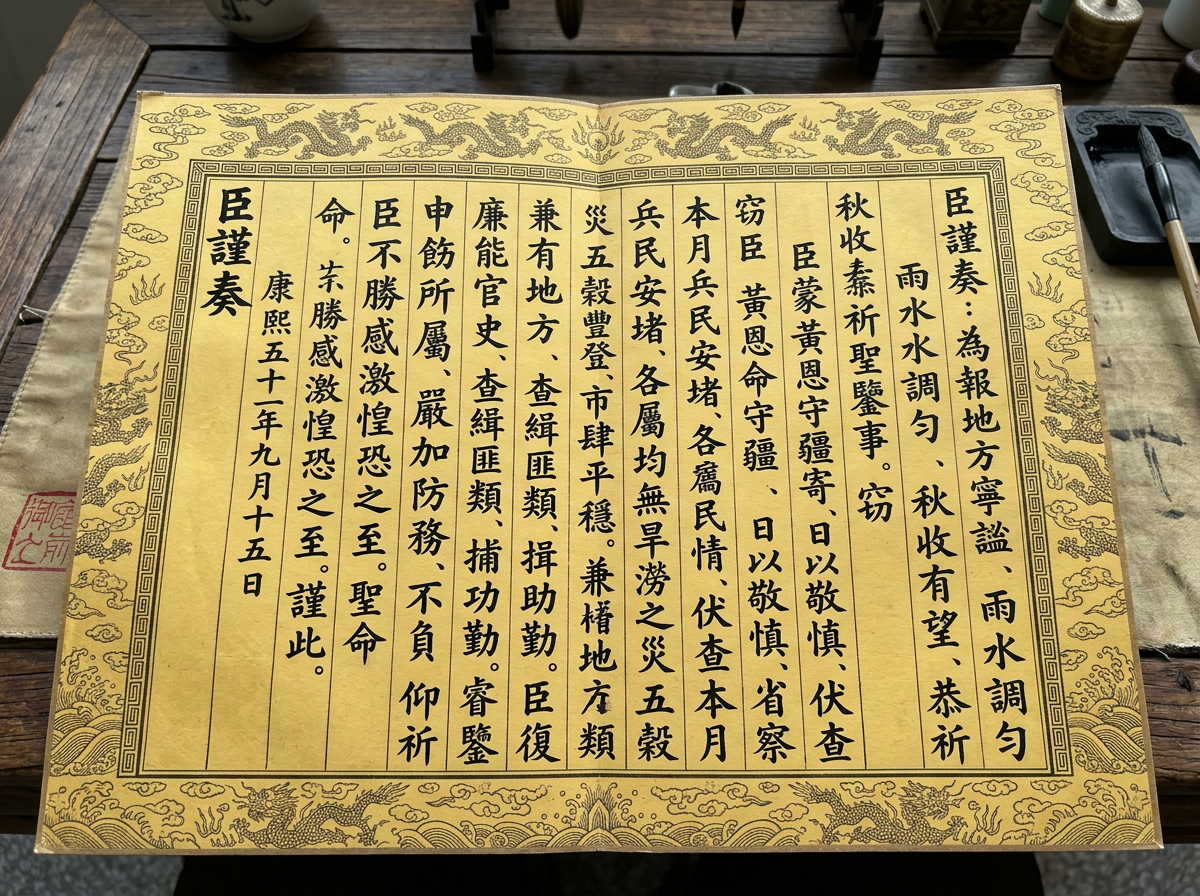 臣謹奏：為報地方寧謐、雨水調勻
雨水水調勻、秋收有望、恭祈
秋收祈聖鑒事。窃
臣蒙黃恩守疆寄、日以敬慎、伏查
窃臣 黃恩命守疆、日以敬慎、省察
本月兵民安堵、各民情、伏查本月
兵民安堵、各屬均無旱澇之災五穀
災五穀豐登、市肆平穩。兼地方類
兼有地方、查緝匪類、揖助勤。臣復
廉能官史、查緝匪類、捕功勤。睿鑒
申飭所屬、嚴加防務、不負 仰祈
臣不勝感激惶恐之至。聖命
命。勝感激惶恐之至。謹此。
康熙五十一年九月十五日
臣謹奏